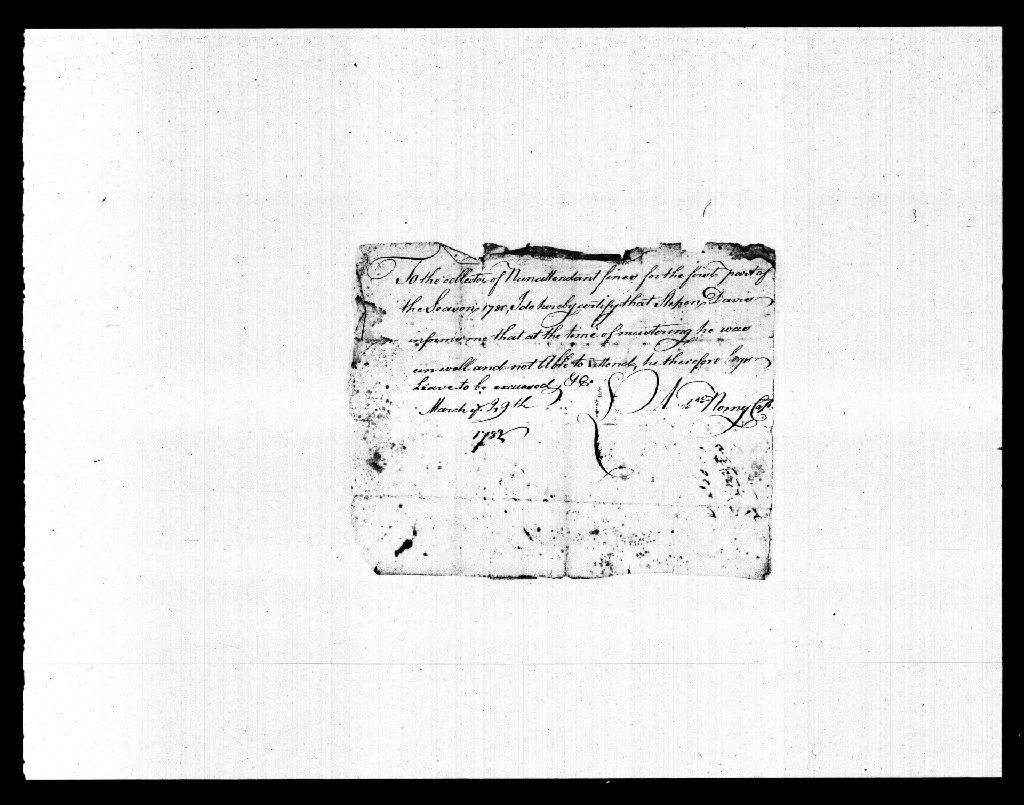 To the collector of Nunattendant fines for the first part of
the Season 1780, I do hereby certify that Stephen Davis
informs me that at the time of mustering he was
un well and not Able to attend, he therefore begs
Leave to be excused &c
March ye 29th
1782